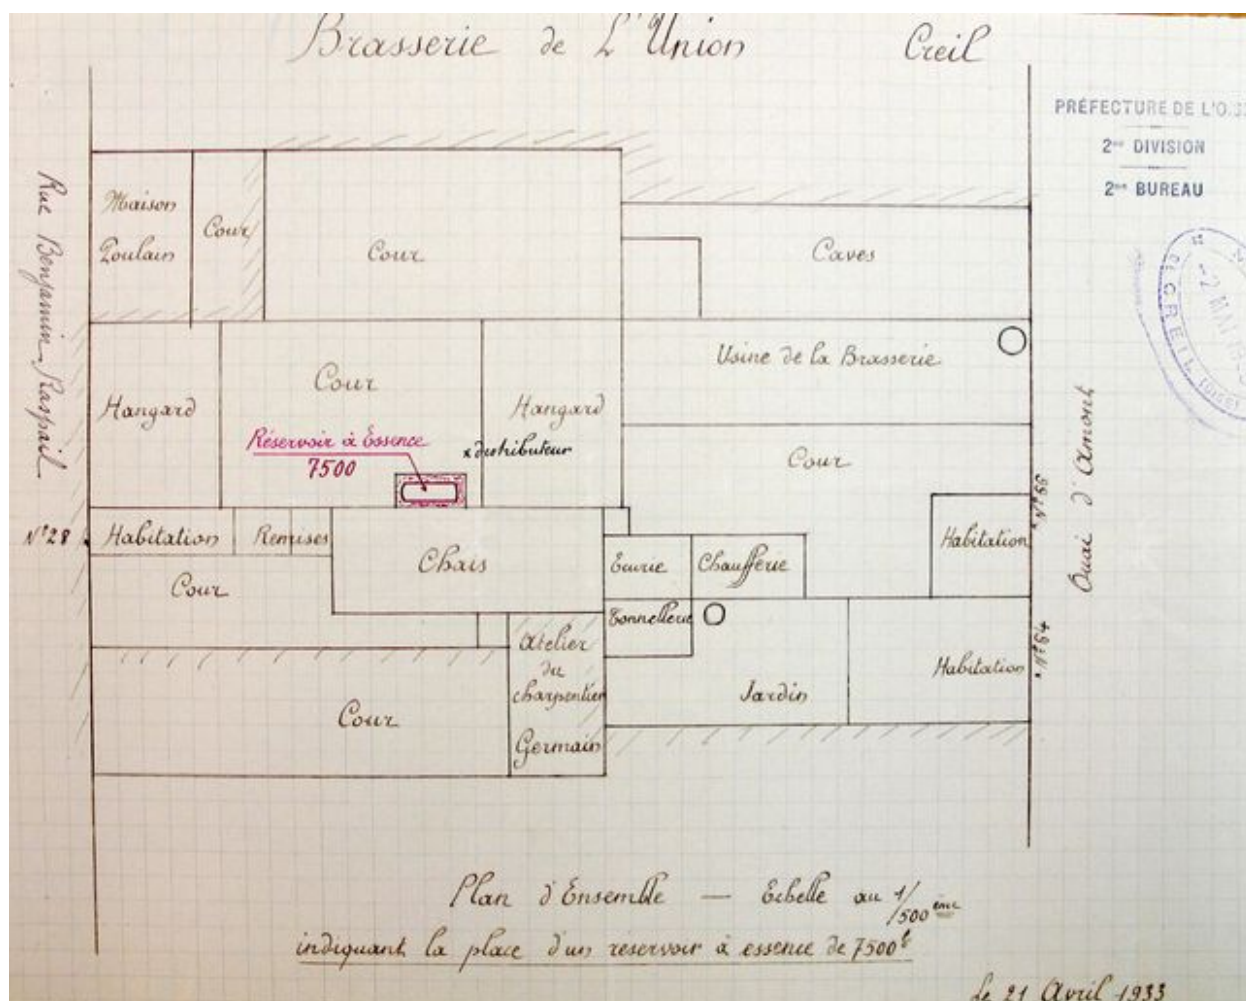 Brasserie de L'Union Creil
PRÉFECTURE DE L'O
2me DIVISION
2me BUREAU
CREIL
Rue Benjamin Raspail
Maison
Poulain
Cour
Cour
Caves
Usine de la Brasserie
Hangard
Cour
Hangard
Réservoir à Essence
7500
x distributeur
Cour
Quai d'Amont
N° 28
Habitation
Remises
Chais
Ecurie
Chaufferie
Habitation
N° 66
Cour
Tonnellerie
Atelier
du
charpentier
Germain
Jardin
Habitation
N° 64
Cour
Plan d'Ensemble — Echelle au 1/500 ème
indiquant la place d'un réservoir à essence de 7500 l
le 21 Avril 1933